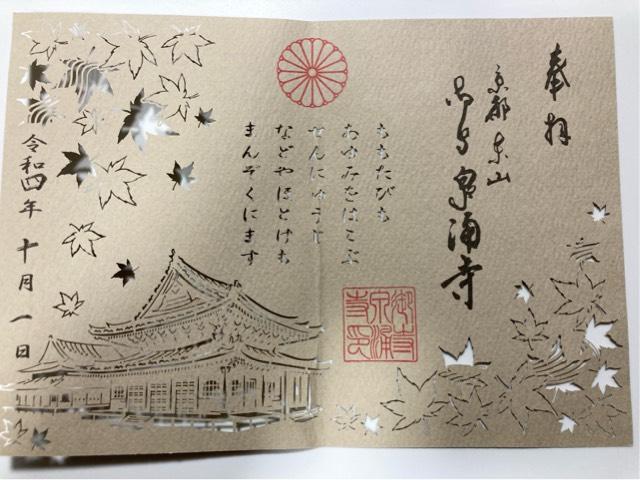 奉拝
京都東山
御寺泉涌寺
ももたびも
あゆみをはこぶ
せんにゅうじ
などやほとけも
まんぞくにます
御寺
泉涌
寺印
令和四年十月一日